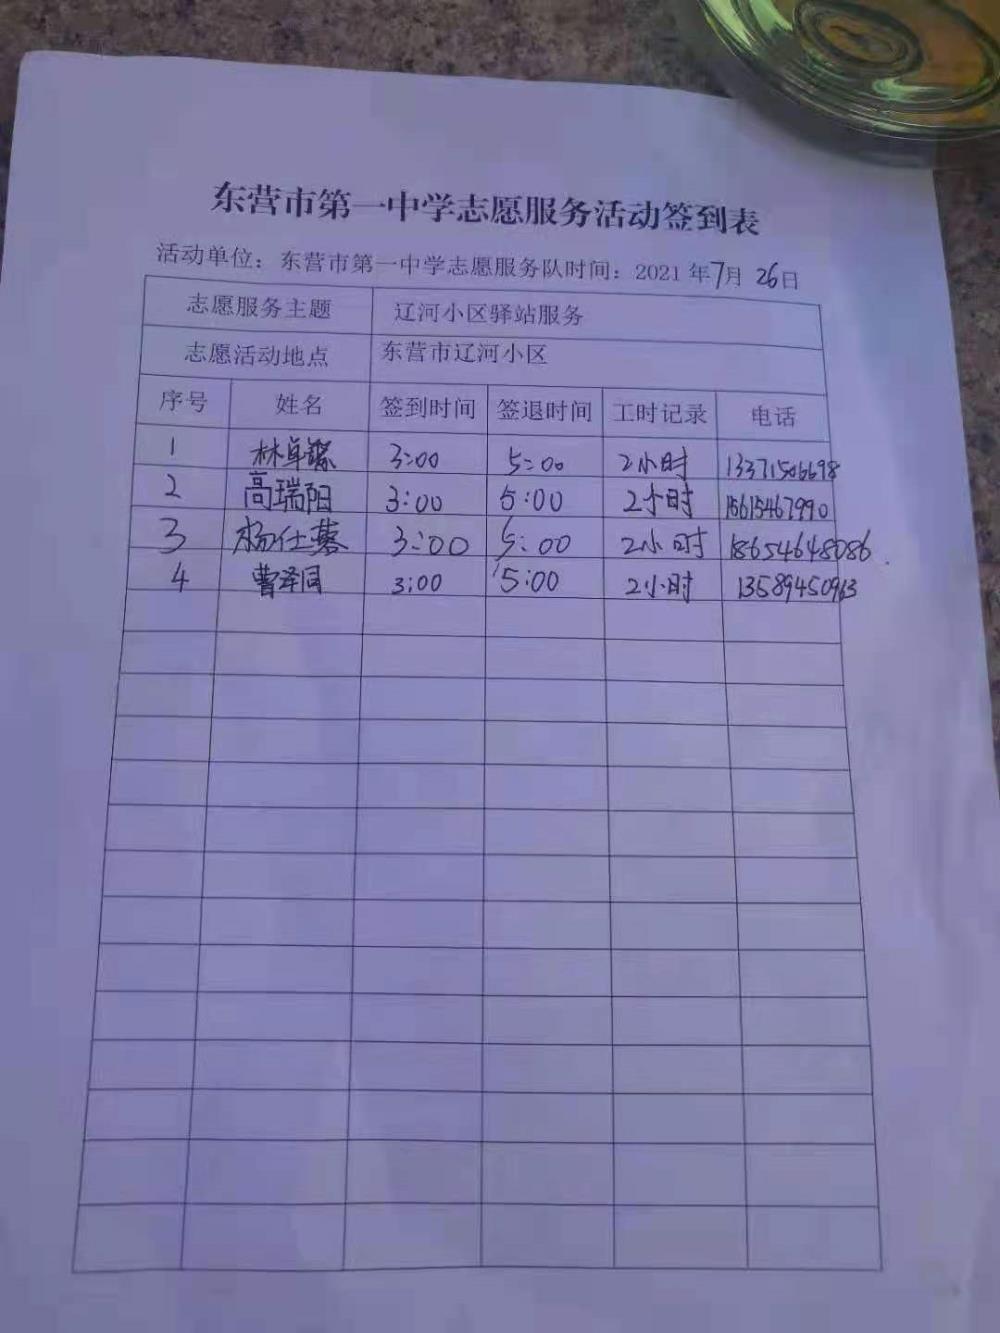 东营市第一中学志愿服务活动签到表
活动单位：东营市第一中学志愿服务队时间：2021 年7月 26日
志愿服务主题 辽河小区驿站服务
志愿活动地点 东营市辽河小区
序号 姓名 签到时间 签退时间 工时记录 电话
1 林卓 3:00 5:00 2小时 13371506698
2 高瑞阳 3:00 5:00 2小时 15615467990
3 杨仕蓉 3:00 5:00 2小时 18654648086
4 曹泽同 3:00 5:00 2小时 13589450963